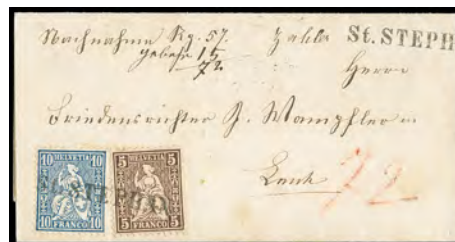 Nachnahme Rp. 57. zahlb St. STEPH
Gebühr 15
72
Herrn
Friedensrichter J. Wampfler in
Lenk 72
HELVETIA
10 10
FRANCO
10 10
HELVETIA
5 5
FRANCO
5 5
St. STEPHAN